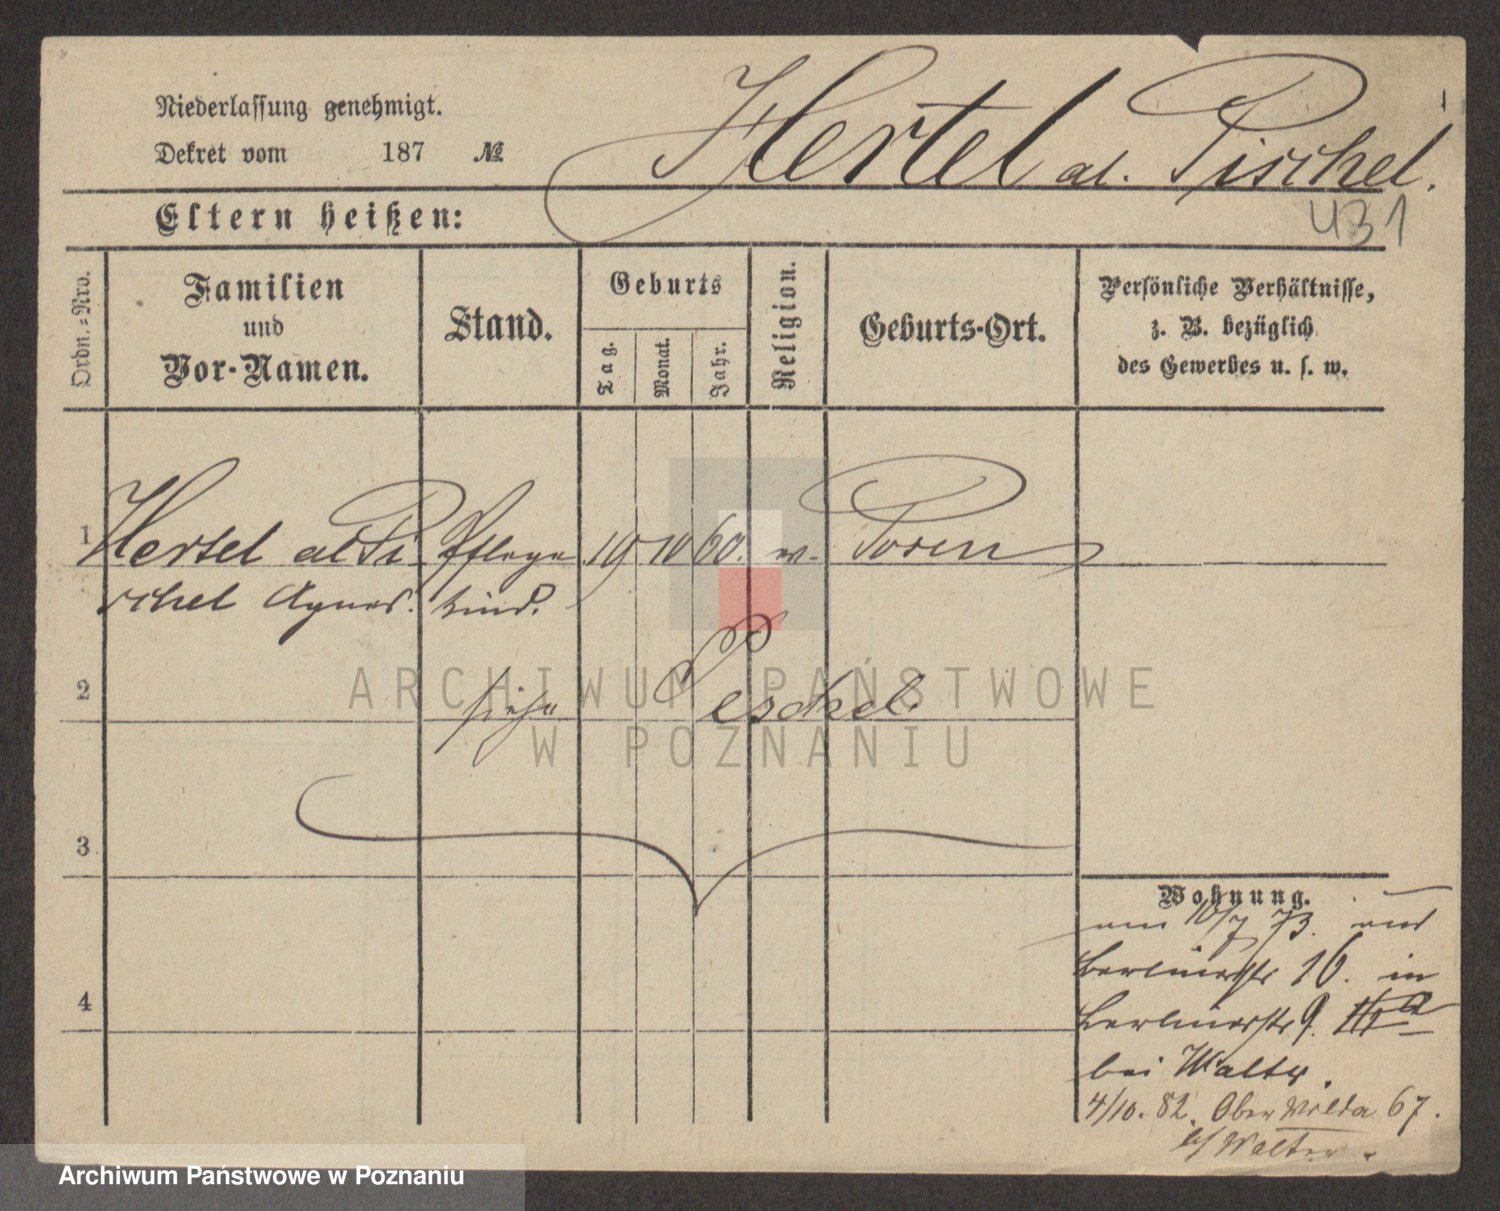 Niederlassung genehmigt.
Dekret vom 187 №
Hertel al. Pischel.
431
Eltern heißen:
Ordn.=Nro.
Familien
und
Vor-Namen.
Stand.
Geburts
Tag.
Monat.
Jahr.
Religion.
Geburts-Ort.
Persönliche Verhältnisse,
z. B. bezüglich
des Gewerbes u. s. w.
1 Hertel al Pi Pflege 19 10 60. w. Posen
schel Agnes. kind.
2 siehe Peschel.
3
4
Wohnung.
am 10/7 73. aus
Berlinerstr 16. in
Berlinerstr 9.
bei Walter.
4/10. 82. Ober Wilda 67.
b/ Walter.
ARCHIWUM PAŃSTWOWE
W POZNANIU
Archiwum Państwowe w Poznaniu